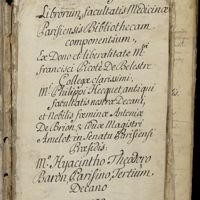 Librorum facultatis Medicinæ
Parisiensis Bibliothecam
componentium,
Ex Dono et liberalitate Mri
francisci Picoté De Belestre
Collegæ clarissimi,
Mri Philippi Hecquet antiqui
facultatis nostræ Decani,
et Nobilis fœminæ Antoniæ
De Magistri
Amelot in Senatu Parisiensi
Præsidis.
Mro Hyacintho Theodoro
Baron, Parisino, Tertium
Decano